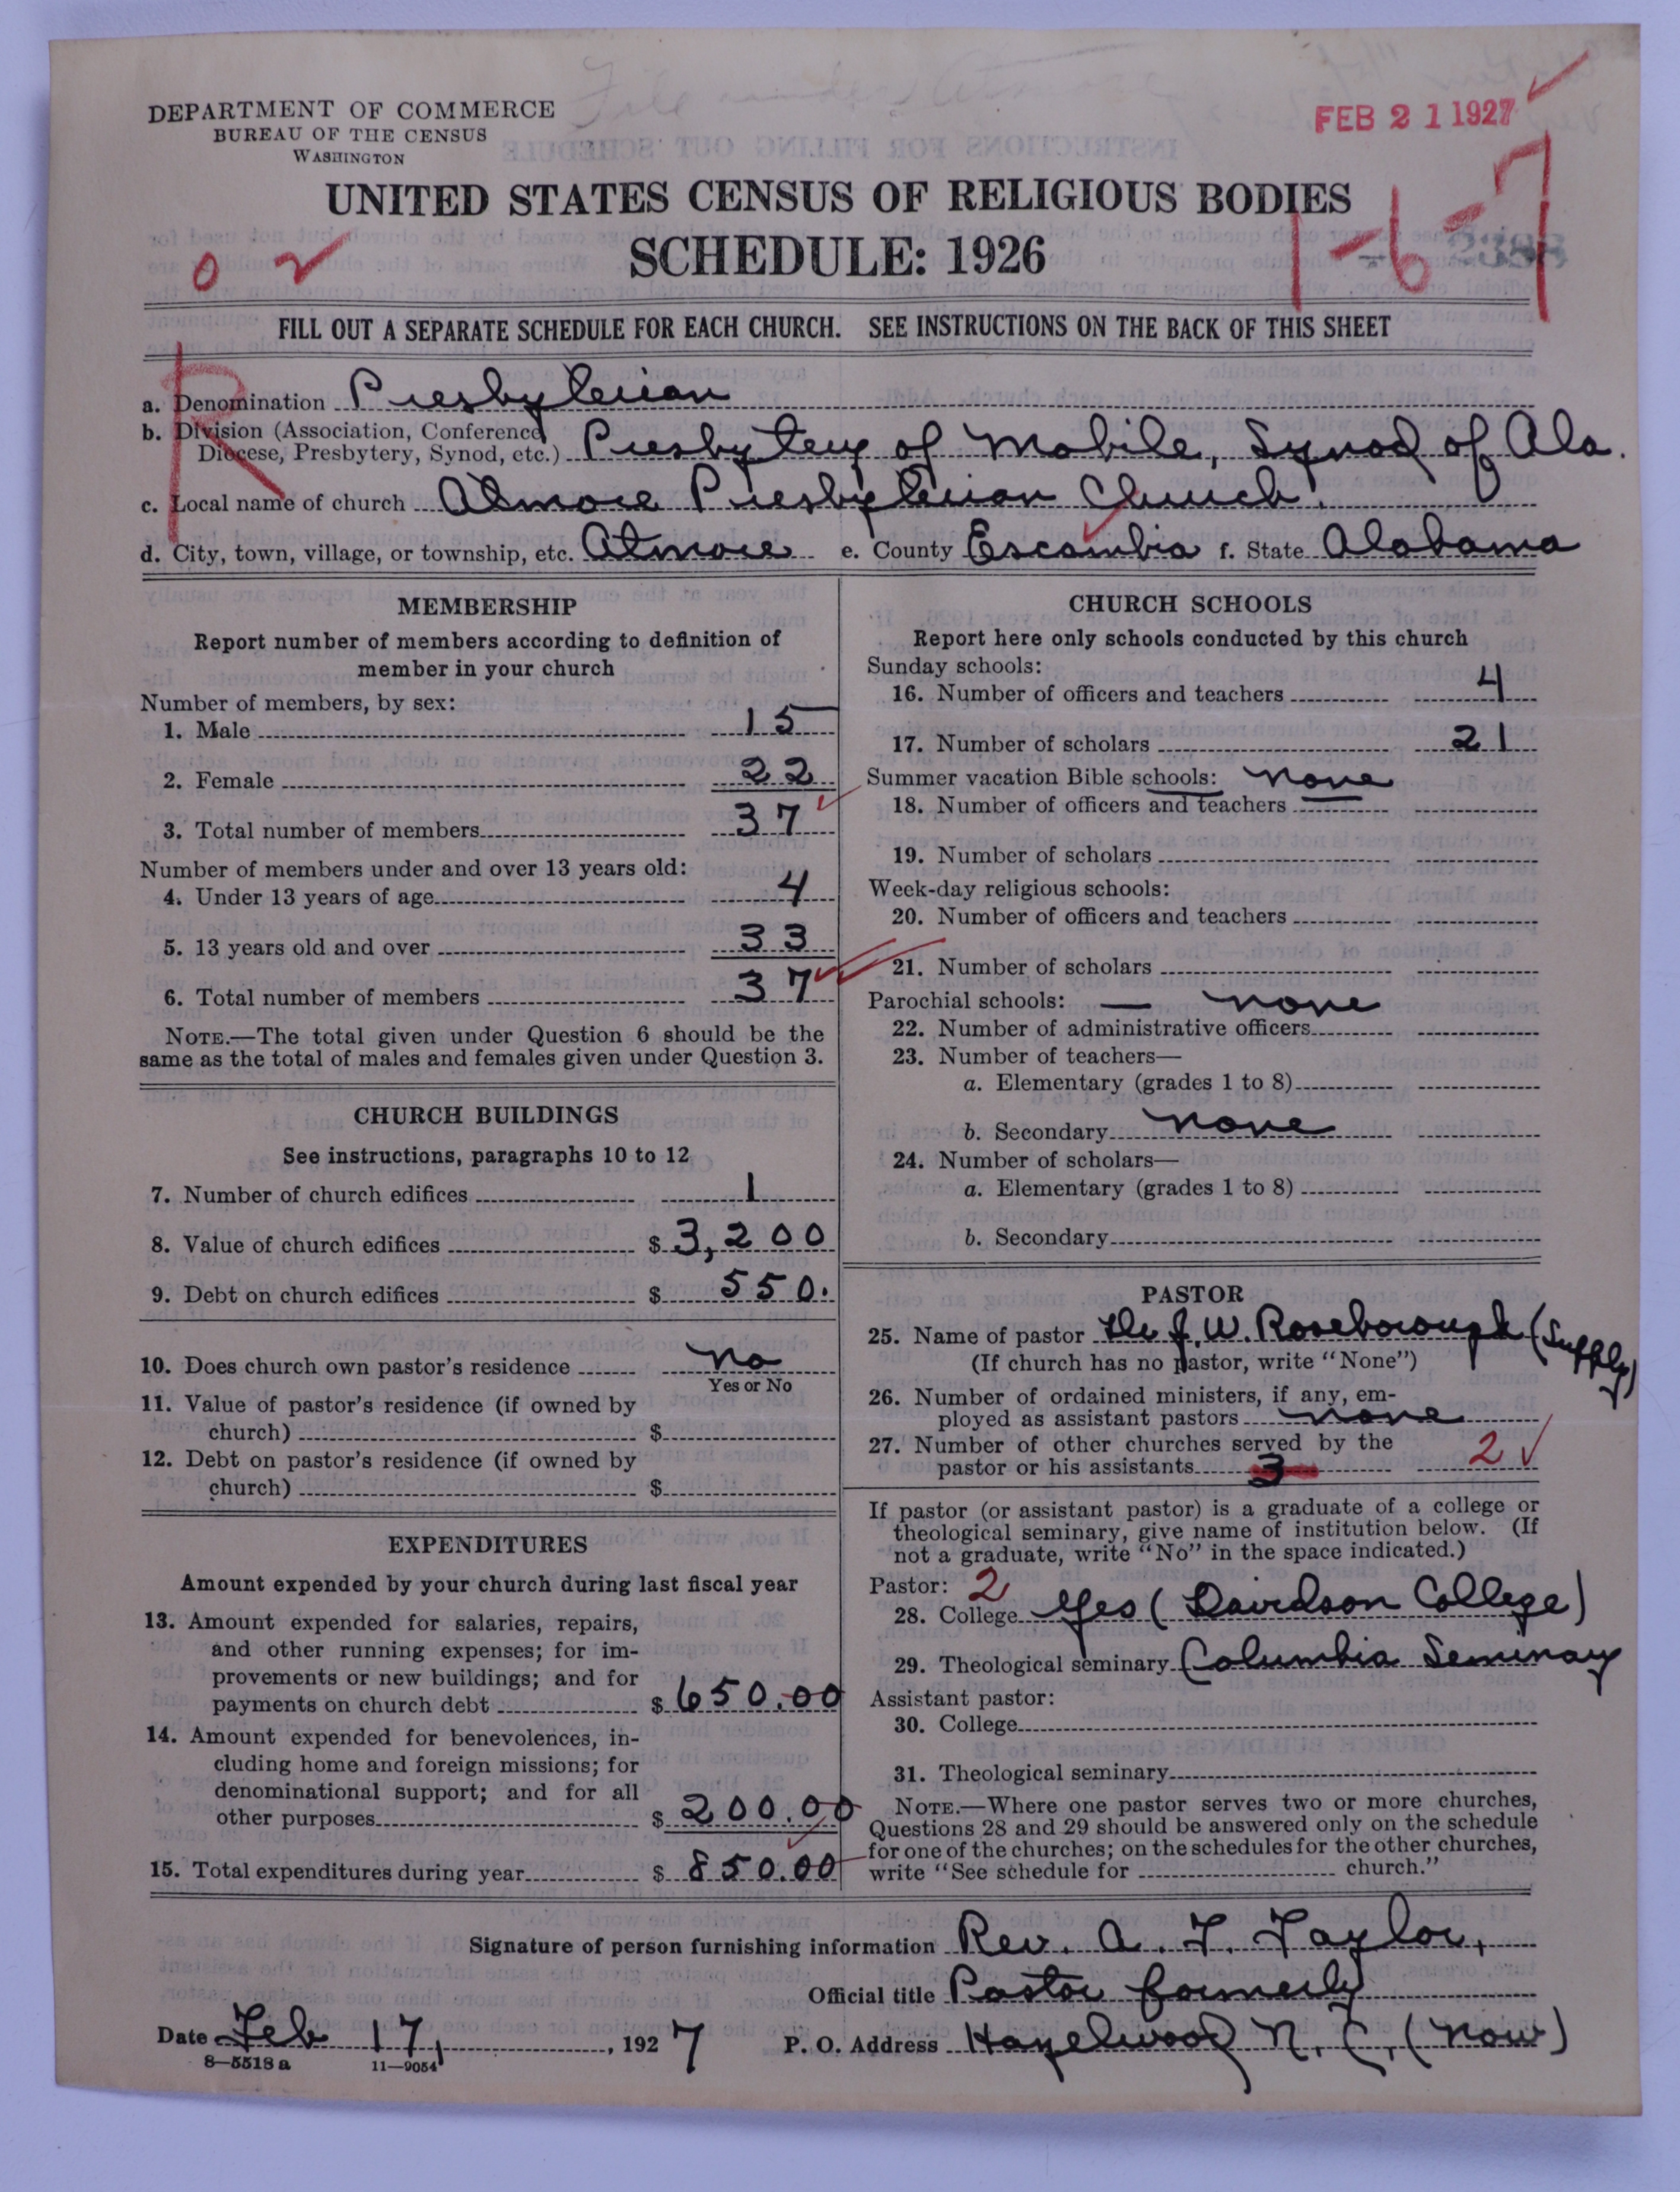 DEPARTMENT OF COMMERCE
BUREAU OF THE CENSUS
WASHINGTON
FEB 21 1927
UNITED STATES CENSUS OF RELIGIOUS BODIES
SCHEDULE: 1926
1-6-7
0 2
FILL OUT A SEPARATE SCHEDULE FOR EACH CHURCH. SEE INSTRUCTIONS ON THE BACK OF THIS SHEET
R
a. Denomination Presbyterian
b. Division (Association, Conference, Diocese, Presbytery, Synod, etc.) Presbytery of Mobile, Synod of Ala.
c. Local name of church Atmore Presbyterian Church.
d. City, town, village, or township, etc. Atmore e. County Escambia f. State Alabama
MEMBERSHIP
Report number of members according to definition of
member in your church
Number of members, by sex:
1. Male 15
2. Female 22
3. Total number of members 37
Number of members under and over 13 years old:
4. Under 13 years of age 4
5. 13 years old and over 33
6. Total number of members 37
NOTE.—The total given under Question 6 should be the
same as the total of males and females given under Question 3.
CHURCH BUILDINGS
See instructions, paragraphs 10 to 12
7. Number of church edifices 1
8. Value of church edifices $ 3,200
9. Debt on church edifices $ 550.
10. Does church own pastor's residence no
Yes or No
11. Value of pastor's residence (if owned by
church) $
12. Debt on pastor's residence (if owned by
church) $
EXPENDITURES
Amount expended by your church during last fiscal year
13. Amount expended for salaries, repairs,
and other running expenses; for im-
provements or new buildings; and for
payments on church debt $ 650.00
14. Amount expended for benevolences, in-
cluding home and foreign missions; for
denominational support; and for all
other purposes $ 200.00
15. Total expenditures during year $ 850.00
CHURCH SCHOOLS
Report here only schools conducted by this church
Sunday schools:
16. Number of officers and teachers 4
17. Number of scholars 21
Summer vacation Bible schools: none
18. Number of officers and teachers
19. Number of scholars
Week-day religious schools:
20. Number of officers and teachers
21. Number of scholars
Parochial schools: — none
22. Number of administrative officers
23. Number of teachers—
a. Elementary (grades 1 to 8)
b. Secondary none
24. Number of scholars—
a. Elementary (grades 1 to 8)
b. Secondary
PASTOR
25. Name of pastor J. W. Roseborough (Supply)
(If church has no pastor, write "None")
26. Number of ordained ministers, if any, em-
ployed as assistant pastors none
27. Number of other churches served by the
pastor or his assistants 3 2
If pastor (or assistant pastor) is a graduate of a college or
theological seminary, give name of institution below. (If
not a graduate, write "No" in the space indicated.)
Pastor: 2
28. College Yes (Davidson College)
29. Theological seminary (Columbia Seminary
Assistant pastor:
30. College
31. Theological seminary
NOTE.—Where one pastor serves two or more churches,
Questions 28 and 29 should be answered only on the schedule
for one of the churches; on the schedules for the other churches,
write "See schedule for church."
Signature of person furnishing information Rev. A. F. Taylor,
Official title Pastor formerly
Date Feb 17, 1927 P. O. Address Hazelwood N. C. (now)
8—5518a 11—9054